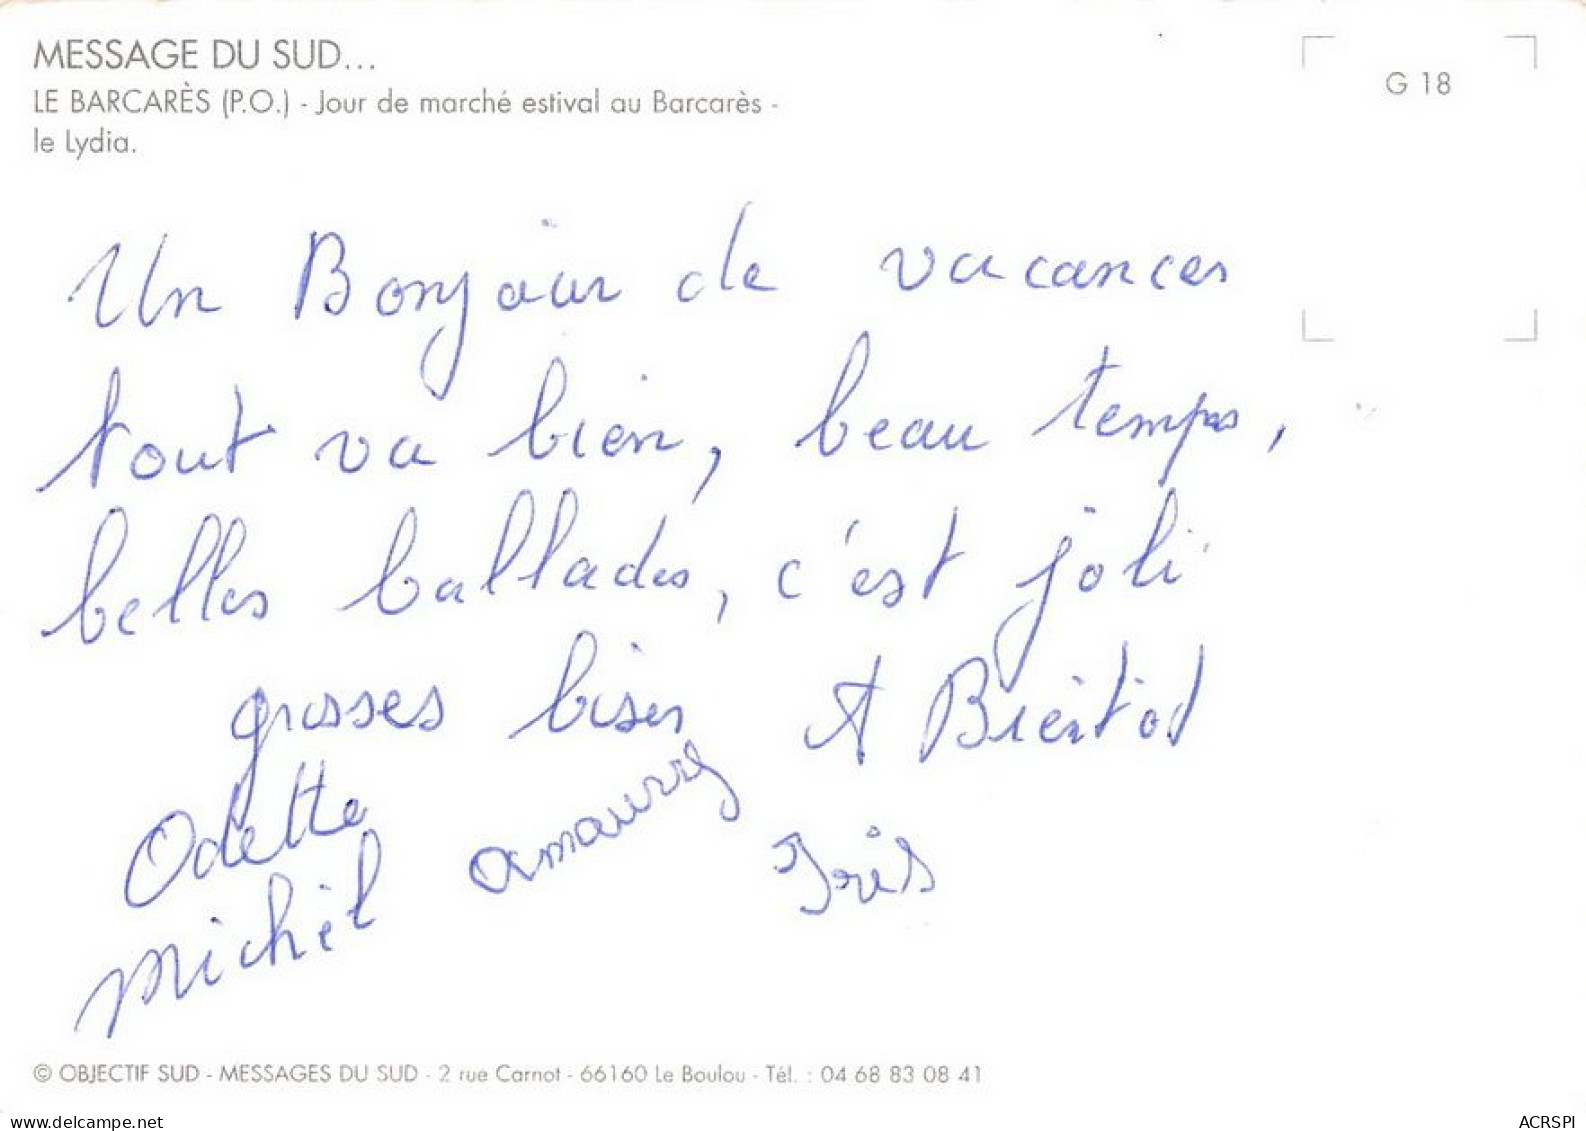 MESSAGE DU SUD...
G 18
LE BARCARÈS (P.O.) - Jour de marché estival au Barcarès -
le Lydia.
Un Bonjour de vacances
tout va bien, beau temps,
belles ballades, c'est joli
grosses bises A Bientot
Odette
Michel amaury Iris
© OBJECTIF SUD - MESSAGES DU SUD - 2 rue Carnot - 66160 Le Boulou - Tél. : 04 68 83 08 41
www.delcampe.net
ACRSPI